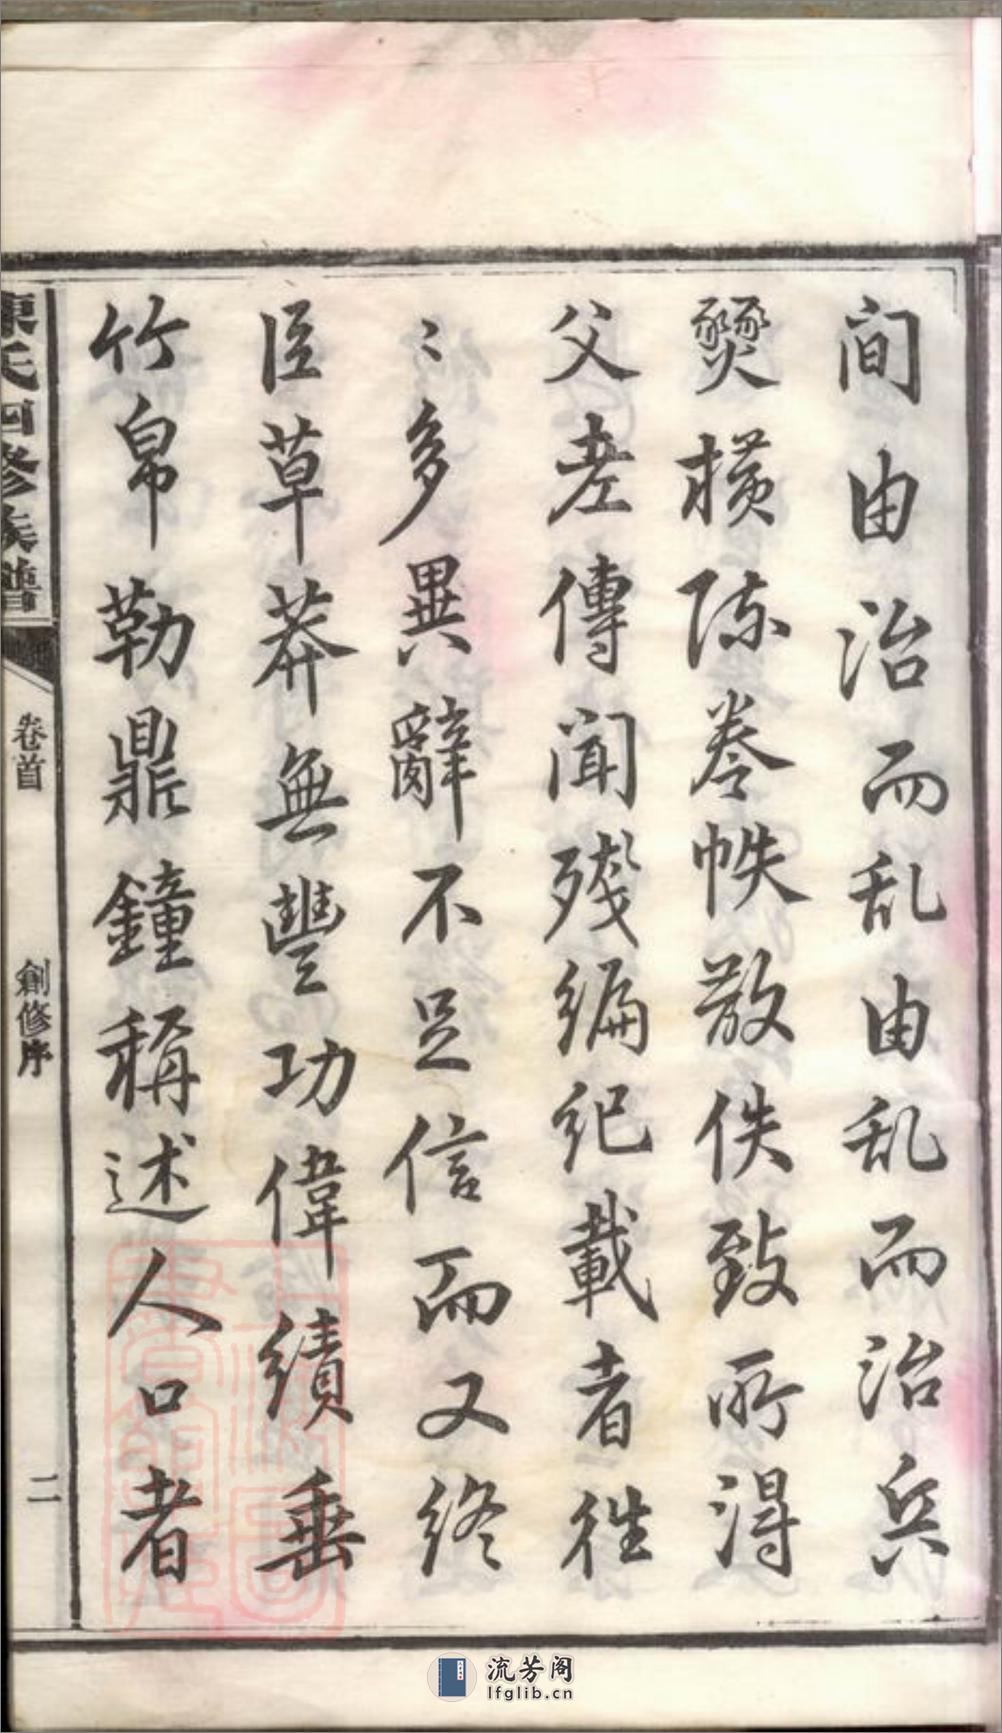 間由治而乱由乱而治兵
燹橫陈卷帙散佚致所得
父老傳聞殘編纪載者往
〻多異辭不足信而又終
臣草莽無豐功偉績垂
竹帛勒鼎鐘稱述人口者
氏四修族譜
卷首
創修序
二
流芳阁
lfglib.cn